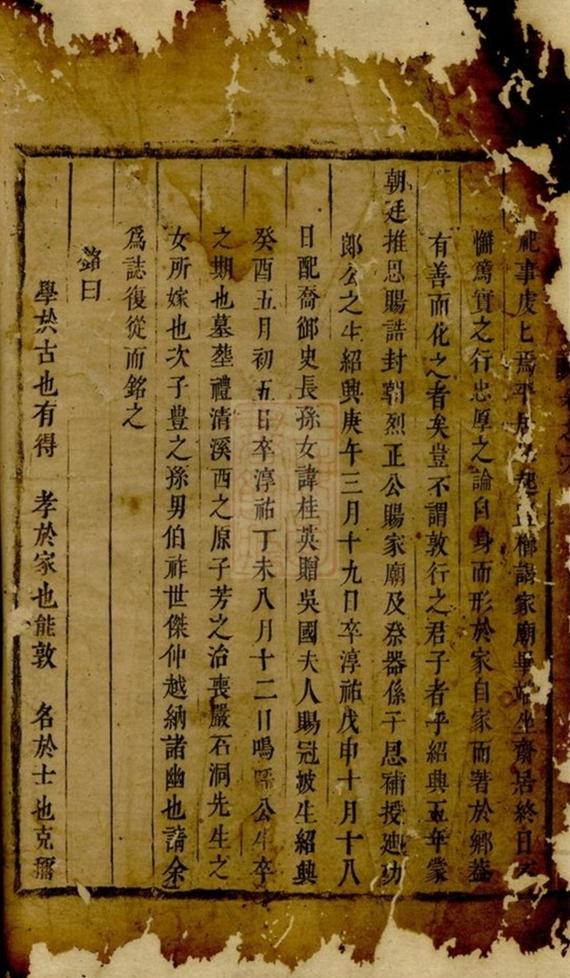 祀事虔匕焉平居 櫛謁家廟畢端坐齋居終日不
懈篤實之行忠厚之論自身而形於家自家而著於鄉葢
有善而化之者矣豈不謂敦行之君子者乎紹興五年蒙
朝廷推恩賜誥封朝烈正公賜家廟及祭器係子恩補授迪功
郎公之生紹興庚午三月十九日卒淳祐戊申十月十八
日配喬御史長孫女諱桂英贈吳國夫人賜冠披生紹興
癸酉五月初五日卒淳祐丁未八月十二日嗚呼公生卒
之期也墓塟禮清溪西之原子芳之治喪嚴石洞先生之
女所嫁也次子豊之孫男伯祚世傑仲越納諸幽也請余
爲誌復從而銘之
銘曰
學於古也有得 孝於家也能敦 名於士也克